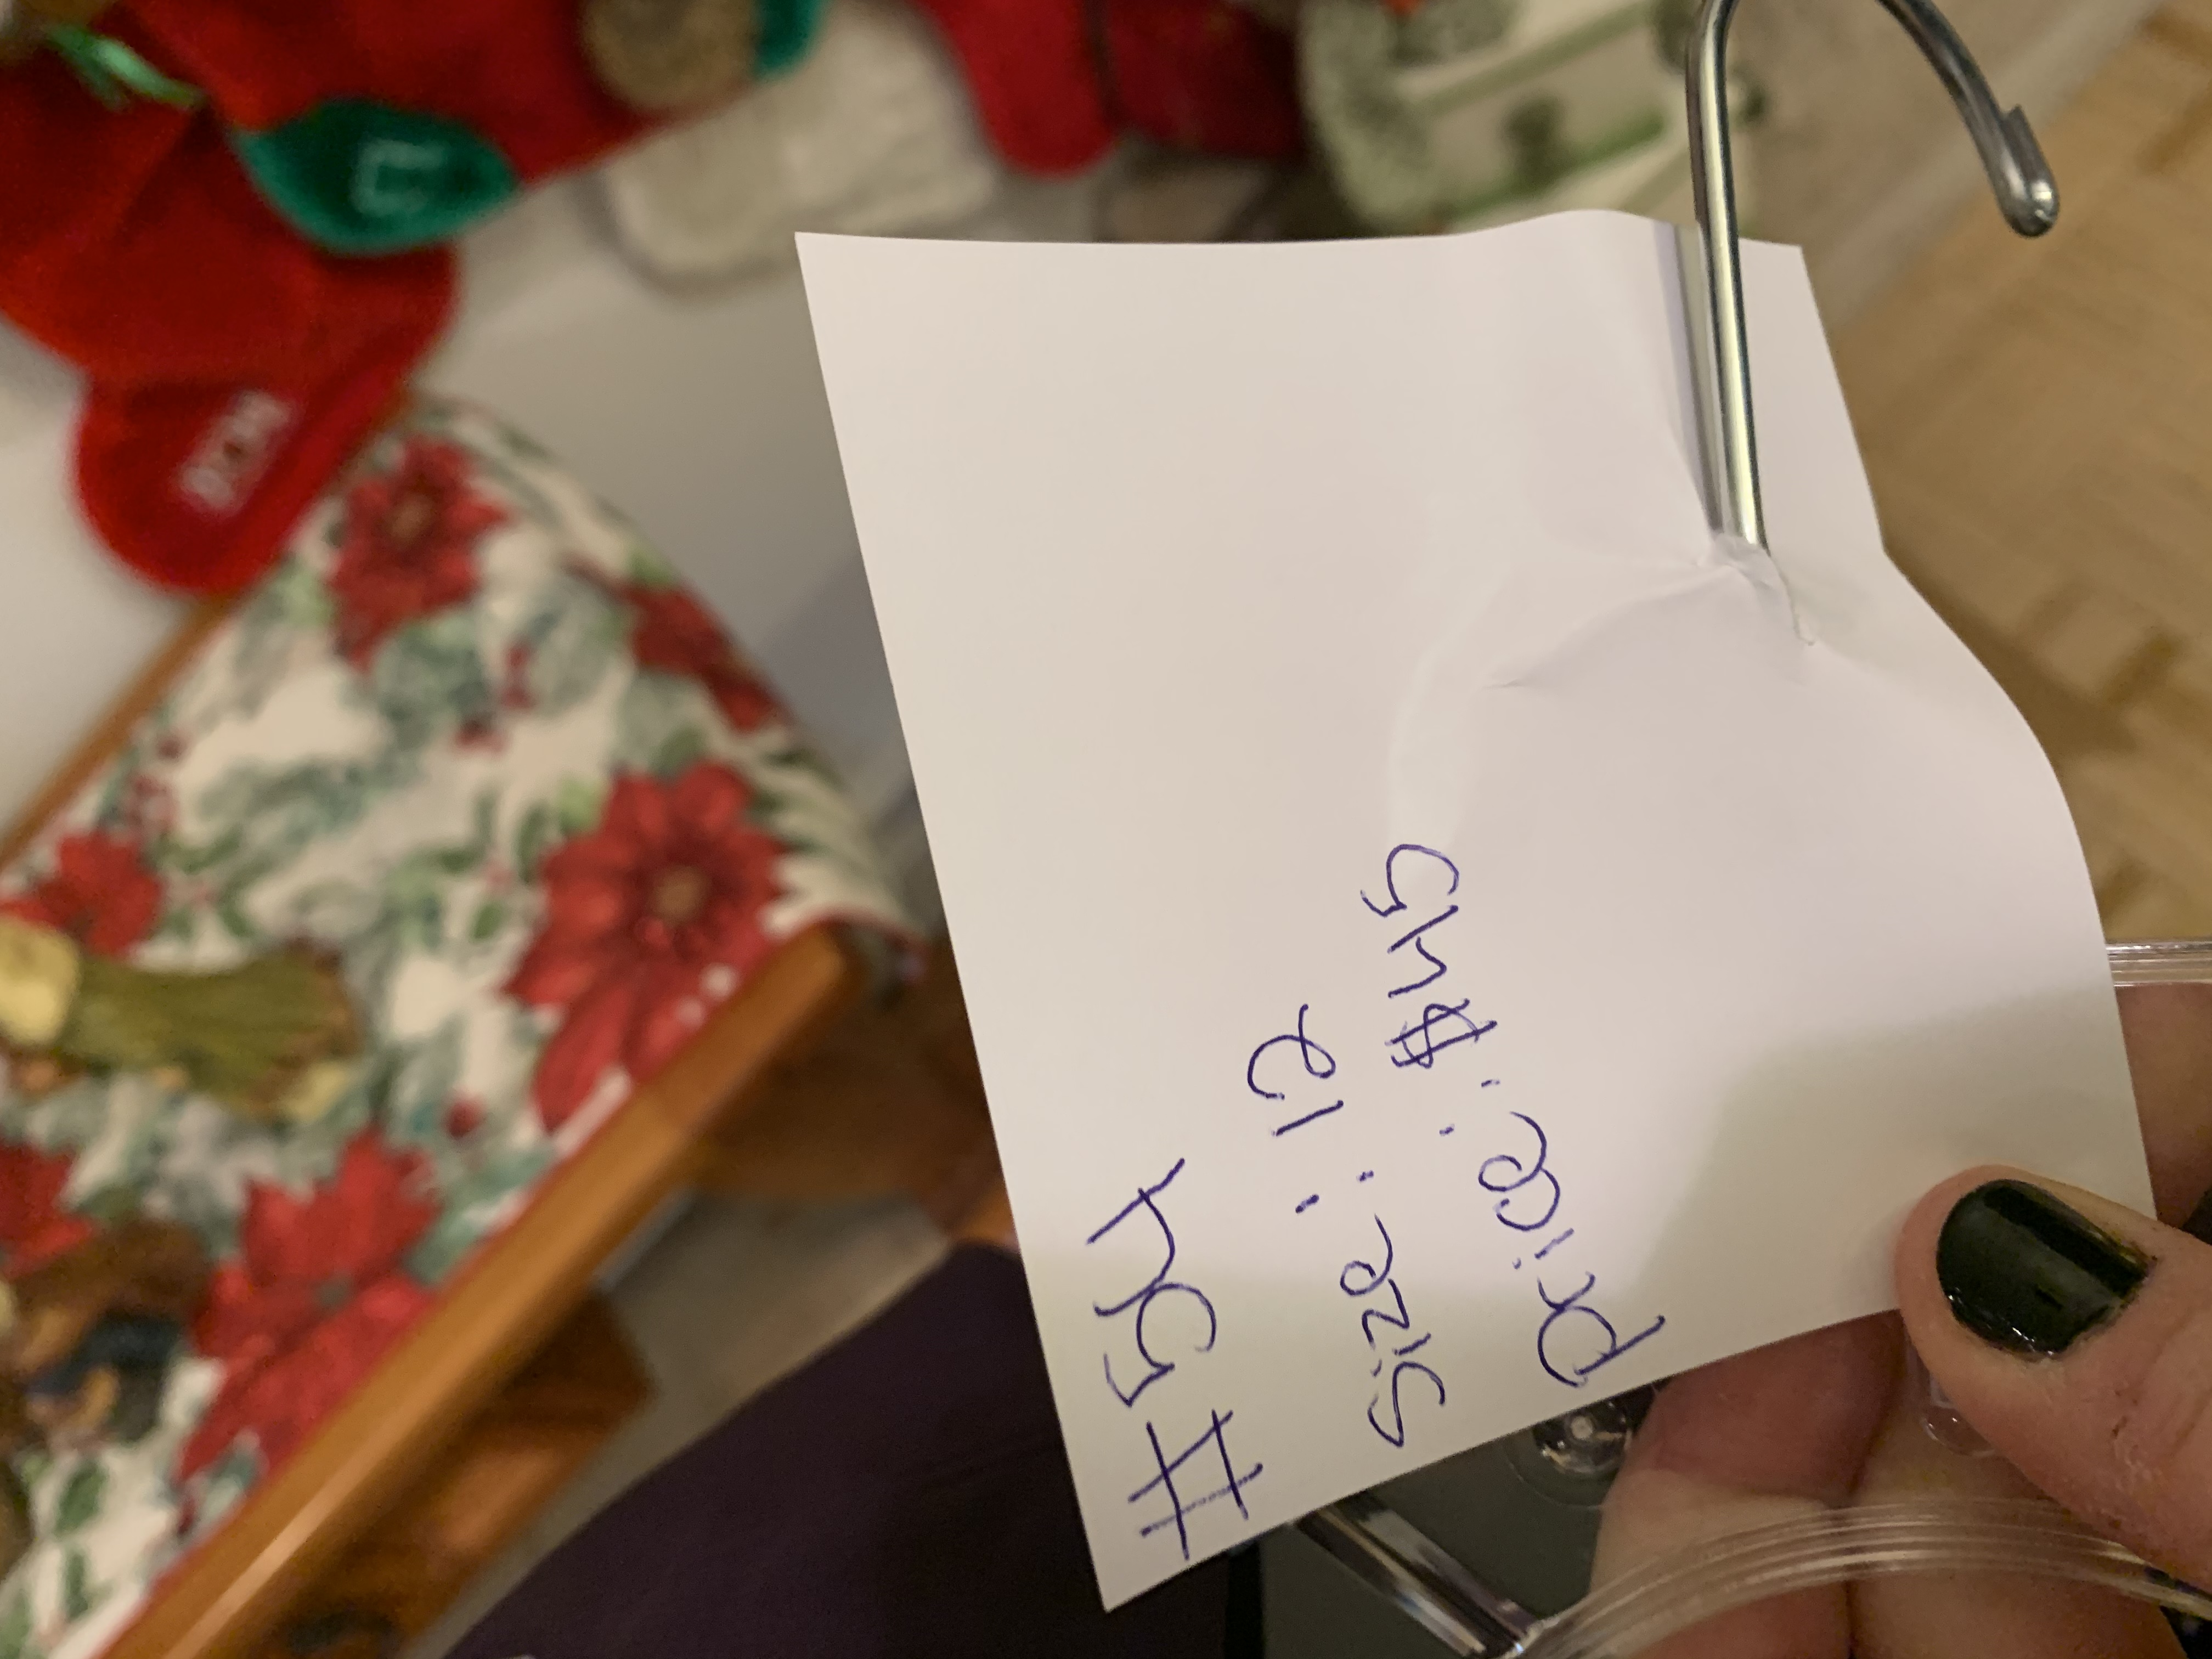 #54
Size: 12
price: $45